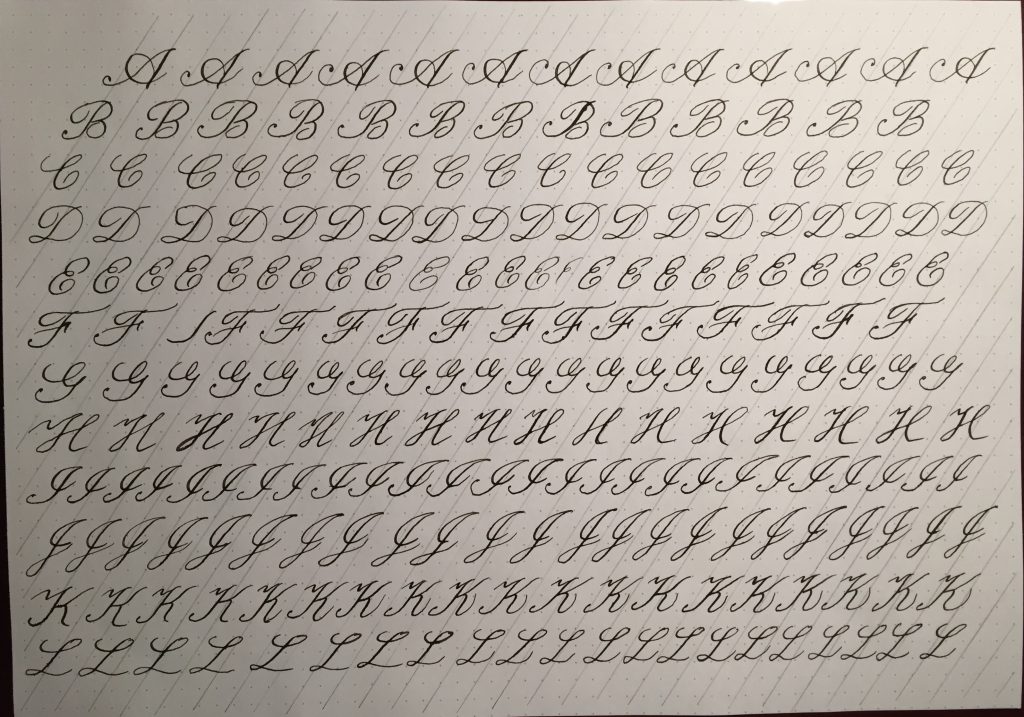 A A A A A A A A A A A A A
B B B B B B B B B B B B B
C C C C C C C C C C C C C C C C C C
D D D D D D D D D D D D D D D D D D D
E E E E E E E E E E E E E E E E E E E E E E E
F F F F F F F F F F F F F F F
G G G G G G G G G G G G G G G G G G G G G
H H H H H H H H H H H H H H H H
I I I I I I I I I I I I I I I I I I I I I I I I I I
J J J J J J J J J J J J J J J J J J J J J J J
K K K K K K K K K K K K K K K K K K K
L L L L L L L L L L L L L L L L L L L L L